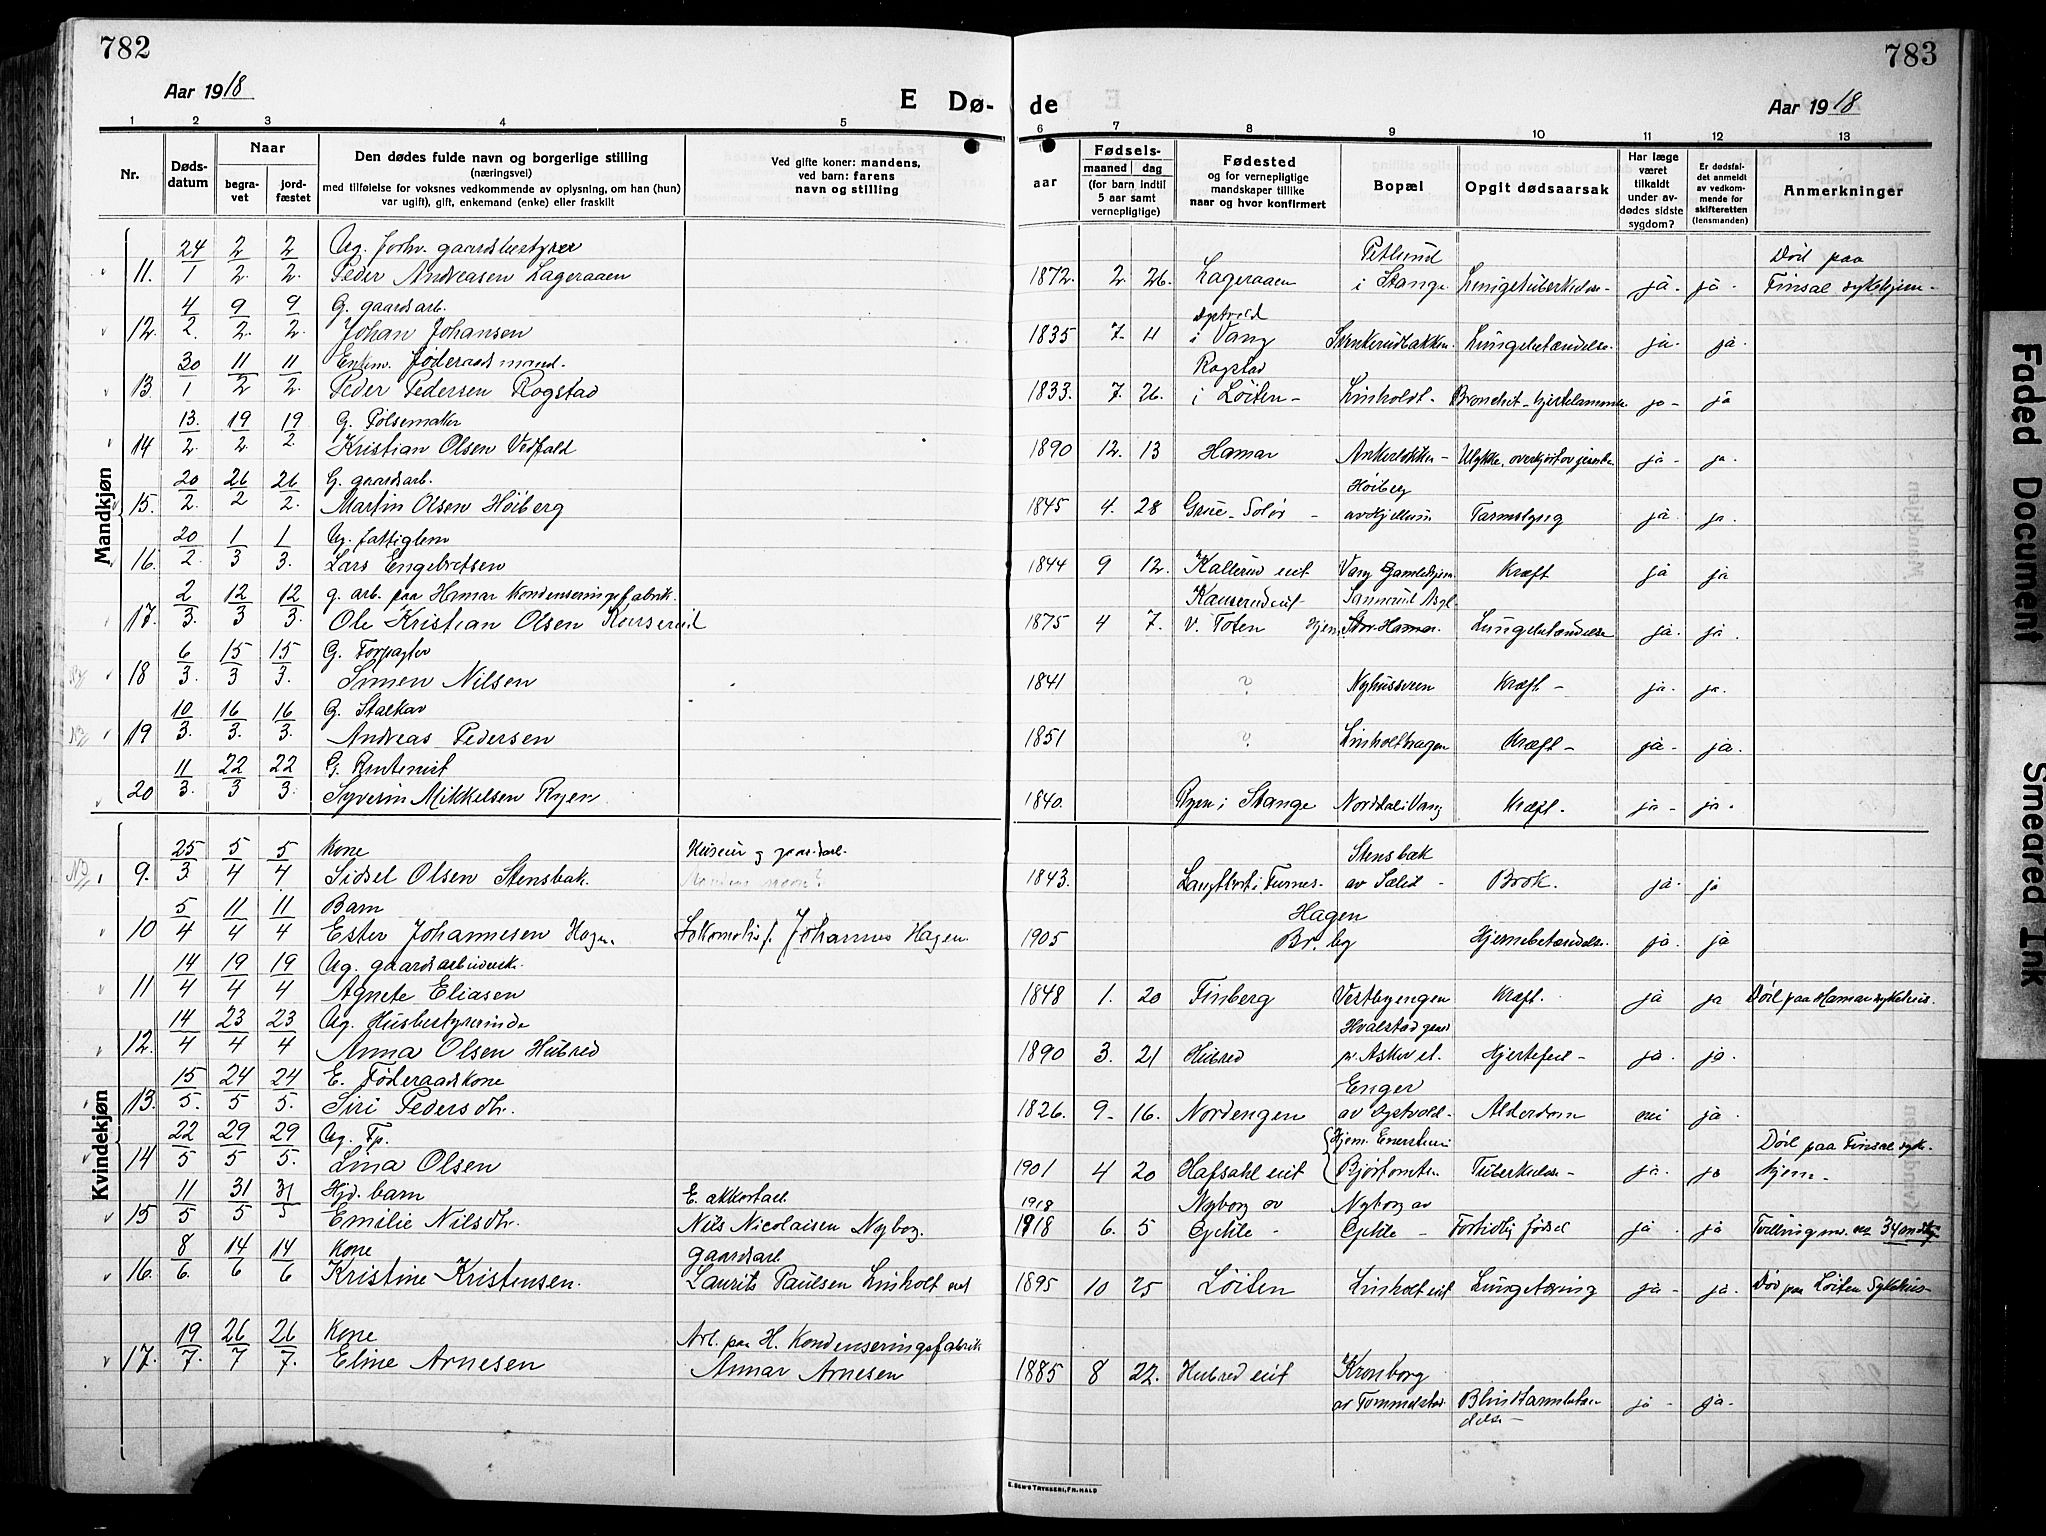 782
783
Aar 1918
E Dø-
de
Aar 1918
1 2 3 4 5
6 7 8 9 10 11 12 13
Nr.
Døds-
datum
Naar
begra-
vet
jord-
fæstet
Den dødes fulde navn og borgerlige stilling
(næringsvei)
med tilføielse for voksnes vedkommende av oplysning, om han (hun)
var ugift), gift, enkemand (enke) eller fraskilt
Ved gifte koner: mandens,
ved barn: farens
navn og stilling
aar
Fødsels-
maaned dag
(for barn indtil
5 aar samt
vernepligtige)
Fødested
og for vernepligtige
mandskaper tillike
naar og hvor konfirmert
Bopæl
Opgit dødsaarsak
Har læge
været
tilkaldt
under av-
dødes sidste
sygdom?
Er dødsfal-
det anmeldt
av vedkom-
mende for
skifteretten
(lensmanden)
Anmerkninger
Mandkjøn
24/1 2/2 2/2 Ug. forhv. gaardsbestyrer Petlund Død paa
11. Peder Andreasen Lageraaen 1872. 2. 26. Lageraaen i Stange Lungetuberkulose - ja - ja - Finsal sykehjem -
4/2. 9/2. 9/2. G. gaardsarb.
12. Johan Johansen 1835 7. 11 i Vang Lungebetændelse. ja. ja.
30/1 11/2 11/2. Enkem. Føderaadsmand. Rogstad
13. Peder Pedersen Rogstad 1833. 7. 26. i Løiten - Linholdt - ja - ja
13./2. 19/2. 19/2. G. Pølsemaker
14 Kristian Olsen Vedfald 1890 12. 13 Hamar Ankerløkken - ja - ja.
20/2. 26/2 26/2. G. gaardsarb. Høiberg
15. Martin Olsen Høiberg 1845 4. 28 Grue - Solør - av Hjellum Tarmslyng ja. ja.
20/2. 1/3 1/3. Ug. fattiglem
16. Lars Engebretsen 1844 9 12. Kallerud eiet Vang Gamlehjem Kræft ja ja
2/3. 12/3 12/3. g. arb. paa Hamar Kondenseringsfabrik. Kauserud eiet
17. Ole Kristian Olsen Kauserud 1875 4 7. V. Toten Hjem Stor-Hamar. Lungebetændelse ja. ja.
6/3. 15/3 15/3. G. Forpagter
18 Simen Nilsen 1841 ? Nyhussveen Kræft - ja. ja.
10/3. 16/3. 16/3. G. Staldkar
19 Andreas Pedersen 1851 ? Linholthagen Kræft - ja - ja.
11/3. 22/3 22/3. G. Rutenist
20 Syverin Mikkelsen Ryen. 1840. Ryen i Stange Nordstad i Vang Kræft. ja - ja.
Kvindekjøn
25/3 5/4 5/4 Kone Husmand og gaardsarb. Stensbak
9. Sidsel Olsen Stensbak. Mandens navn? 1843. Langtbort i Furnes - av Sælid - Brok. ja. ja
5/4 11/4 11/4 Barn Hagen
10 Ester Johannesen Hagen. Lokomotivf. Johannes Hagen. 1905 Br. by Hjernebetændelse. ja. ja
14/4 19/4 19/4 Ug. gaardsarbeiderske.
11 Agnete Eliasen 1848 1. 20 Finberg Vestbyengen Kræft. ja ja Død paa Hamar sykehus.
14/4 23/4 23/4 Ug. Husbestyrerinde Hvalstad gaard
12. Anna Olsen Hubred 1890 3. 21 Hubred pr. Asker st. Hjertefeil - ja. ja.
15/5. 24/5 24/5. E. Føderaadskone Enger
13. Siri Pedersdtr. 1826. 9. 16. Nordengen av Alderdom nei ja.
22/5 29/5 29/5. Ug. Tp. Hjem. Død paa Finsal syke-
14 Lina Olsen 1901 4 20 Hafsahl eiet Bjørtomten Tuberkulose - ja. ja hjem.
11/5 31/5 31/5 Hjd. barn E. akkordarb. 1918 Nyborg av Nyborg av
15 Emilie Nilsdtr. Nils Nicolaisen Nyborg. 1918 6. 5 For tidlig fødsel ja. ja
8/6. 14/6 14/6 Kone gaardsarb.
16. Kristine Kristensen. Laurits Paulsen Linholt eiet 1895 10 25 Løiten Linholt eiet Lungetæring ja - ja. Død paa Løiten Sykehus -
19/7. 26/7 26/7. Kone Arb. paa H. Kondenseringsfabrik
17. Eline Arnesen Annar Arnesen 1885 8 22. Hubred eiet Kronborg
av Tommelstad Blindtarmbetæn- ja - ja.
delse -
E. SEM'S TRYKKERI, FR.HALD
Faded Document
Smeared Ink